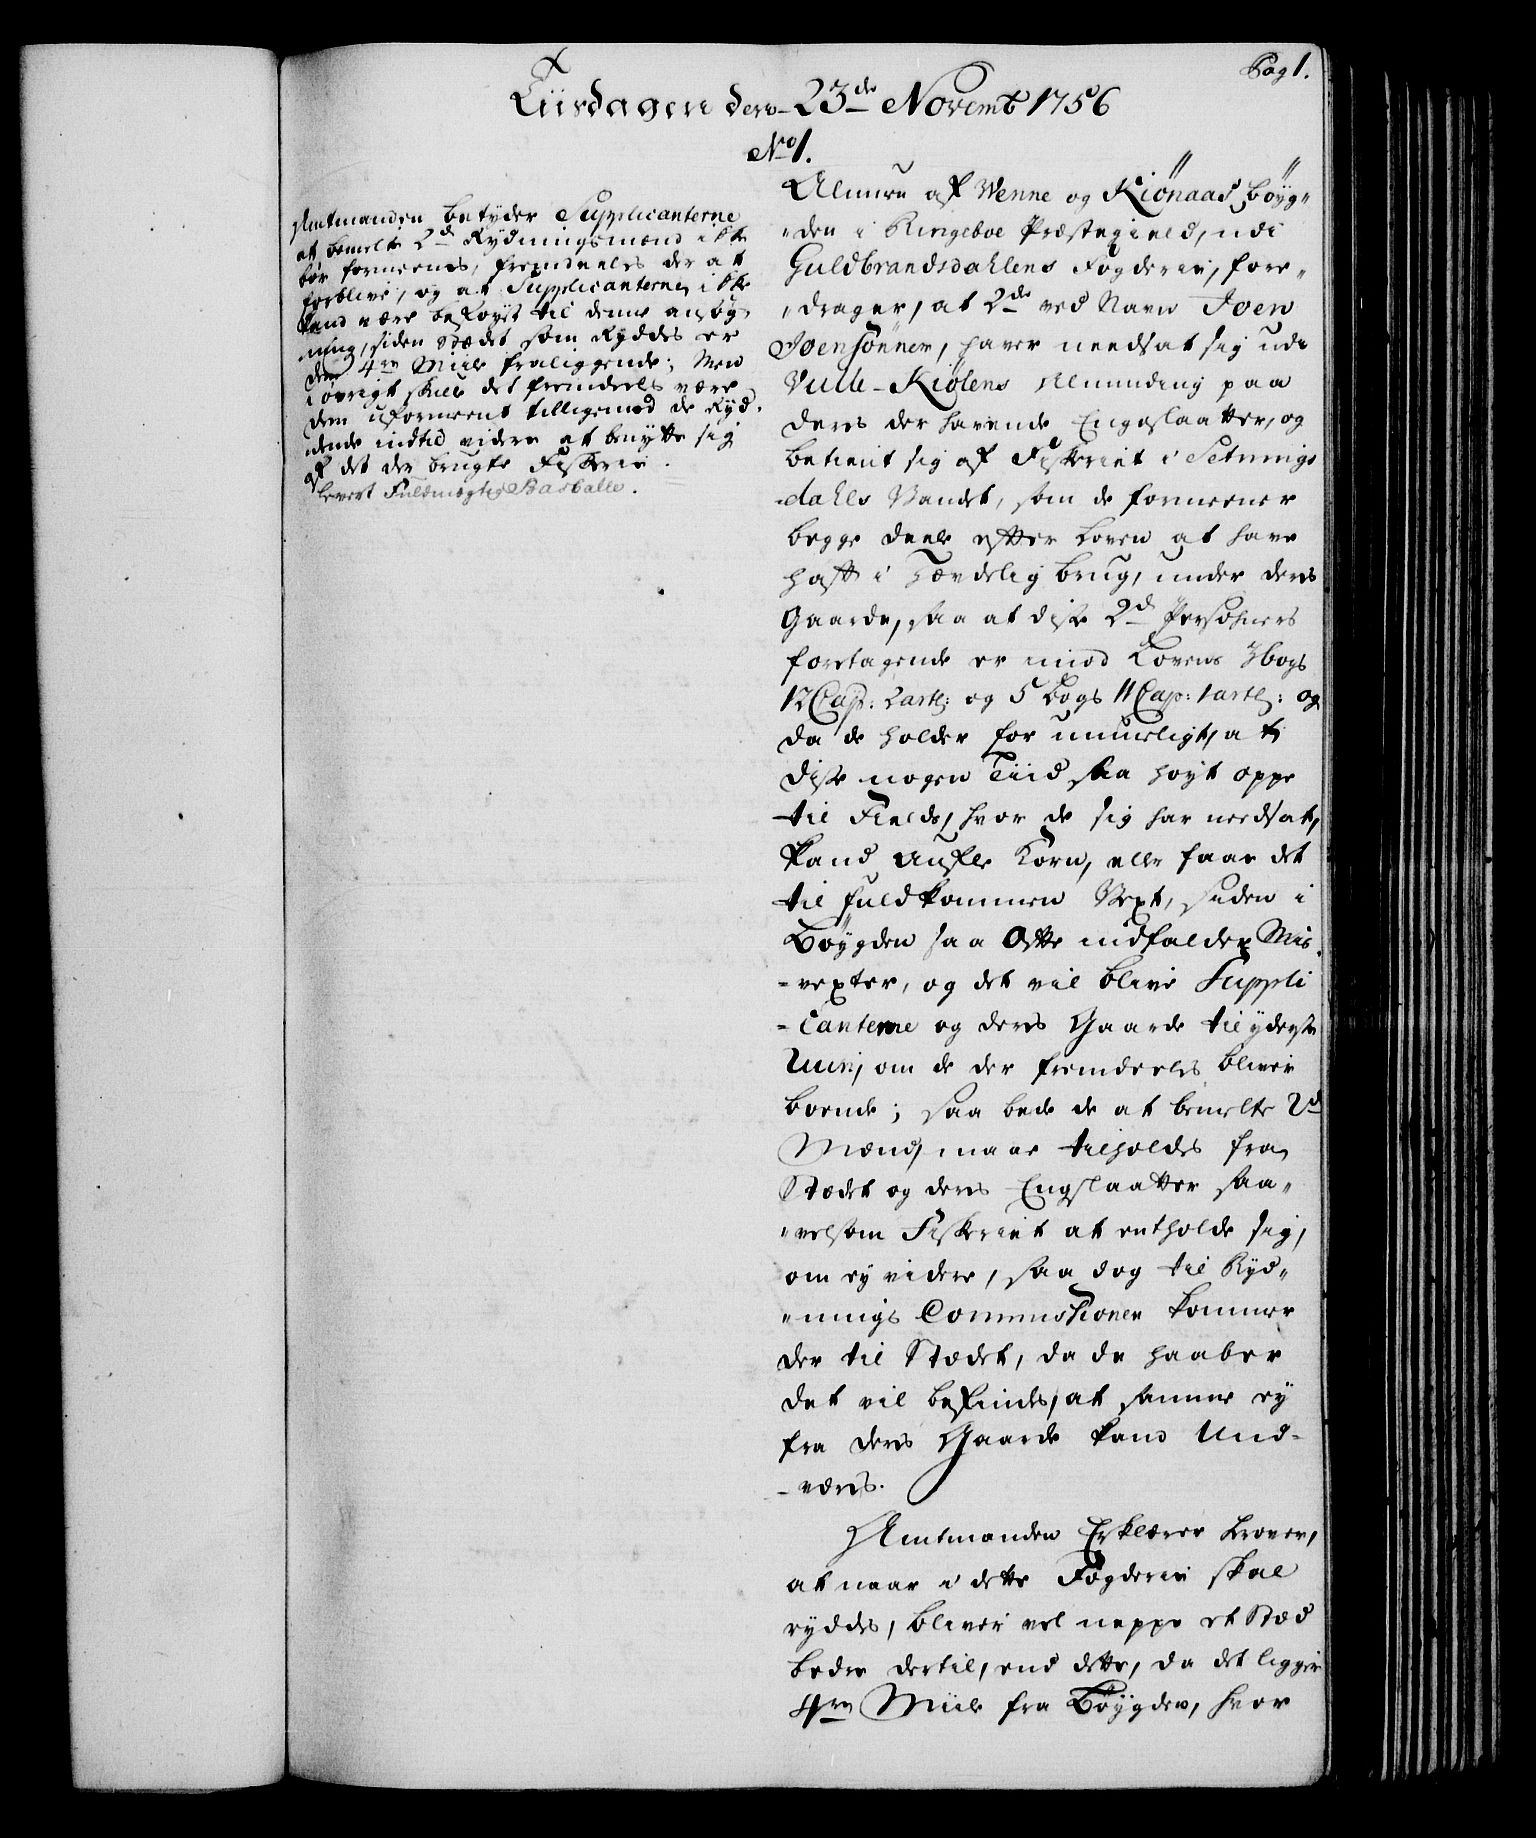 Pag 1.
Tiisdagen den 23de Novemb 1756
No 1.
Amtmanden betyder Supplicanterne
at bemelte 2de Rydningsmænd ikke
bør formeenes, fremdeeles der at
forblive, og at Supplicanterne ikke
kand være beføyet til denne ansøg
ning, siden Stædet som Ryddes er
dem 4re Miile fraliggende; Men
i øvrigt skulle det fremdeeles være
dem uformeent tilligemed de Ryd„
dende indtil videre at benytte sig
af det der brugte Fiskerie.
levert Fuldmægtig Basballe.
Almuen af Wenne og Kiönaas böyg„
„den i Ringeboe Præstegield, udi
Guldbrandsdahlens Fogderie, fore„
„drager, at 2de ved Navn Joen
Joensönner, haver needsat sig udi
Vulle-Kiölens Alminding paa
deres der havende Engeslaatter, og
betient sig af Fiskeriet i Setnings
-dahls Vandet, som de formeener
begge deele efter Loven at have
haft i hævdelig brug, under deres
Gaarde, saa at disse 2de Persohners
foretagende er imod Lovens 3 bogs
12 Cap: 2 artl: og 5 Bogs 11 Cap: 1 artl: og
da de holder for umueligt, at
disse nogen Tiid saa høyt oppe
til Fields, hvor de sig har needsat,
kand aufle Korn, eller faae det
til fuldkommen Vext, siden i
Böygden saa ofte indfalder Mis„
-vexter, og det vil blive Suppli
-canterne og deres Gaarde til yderste
Ruin, om de der fremdeeles bliver
boende; saa bede de at bemelte 2de
Mænd, maae tilholdes fra
Stædet og deres Engslaatter saa„
„velsom Fiskeriet at entholde sig,
om ey videre, saa dog til Ryd„
„nings Commissionen kommer
der til Stædet, da de haaber
det vil befindes, at samme ey
fra deres Gaarde kand Und-
-væres.
Amtmanden Erklærer herover,
at naar i dette Fogderie skal
ryddes, bliver vel neppe et Stæd
bedre dertil, end dette, da det ligger
4re Miile fra Böygden, hvor